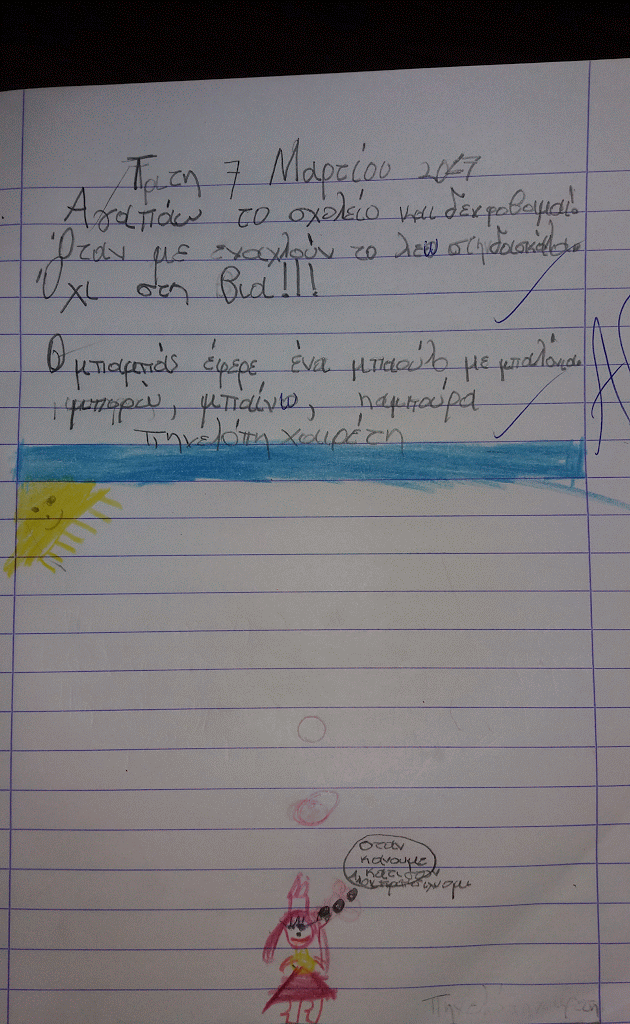 Τρίτη 7 Μαρτίου 2017
Αγαπάω το σχολείο και δεν φοβάμαι.
Όταν με ενοχλούν το λέω στη δασκάλα.
Όχι στη βια!!!
Ο μπαμπάς έφερε ένα μπαούλο με μπαλόνια
μπορώ, μπαίνω, καμπούρα
πηνελόπη χαιρέτη
οταν
κανουμε
κατι